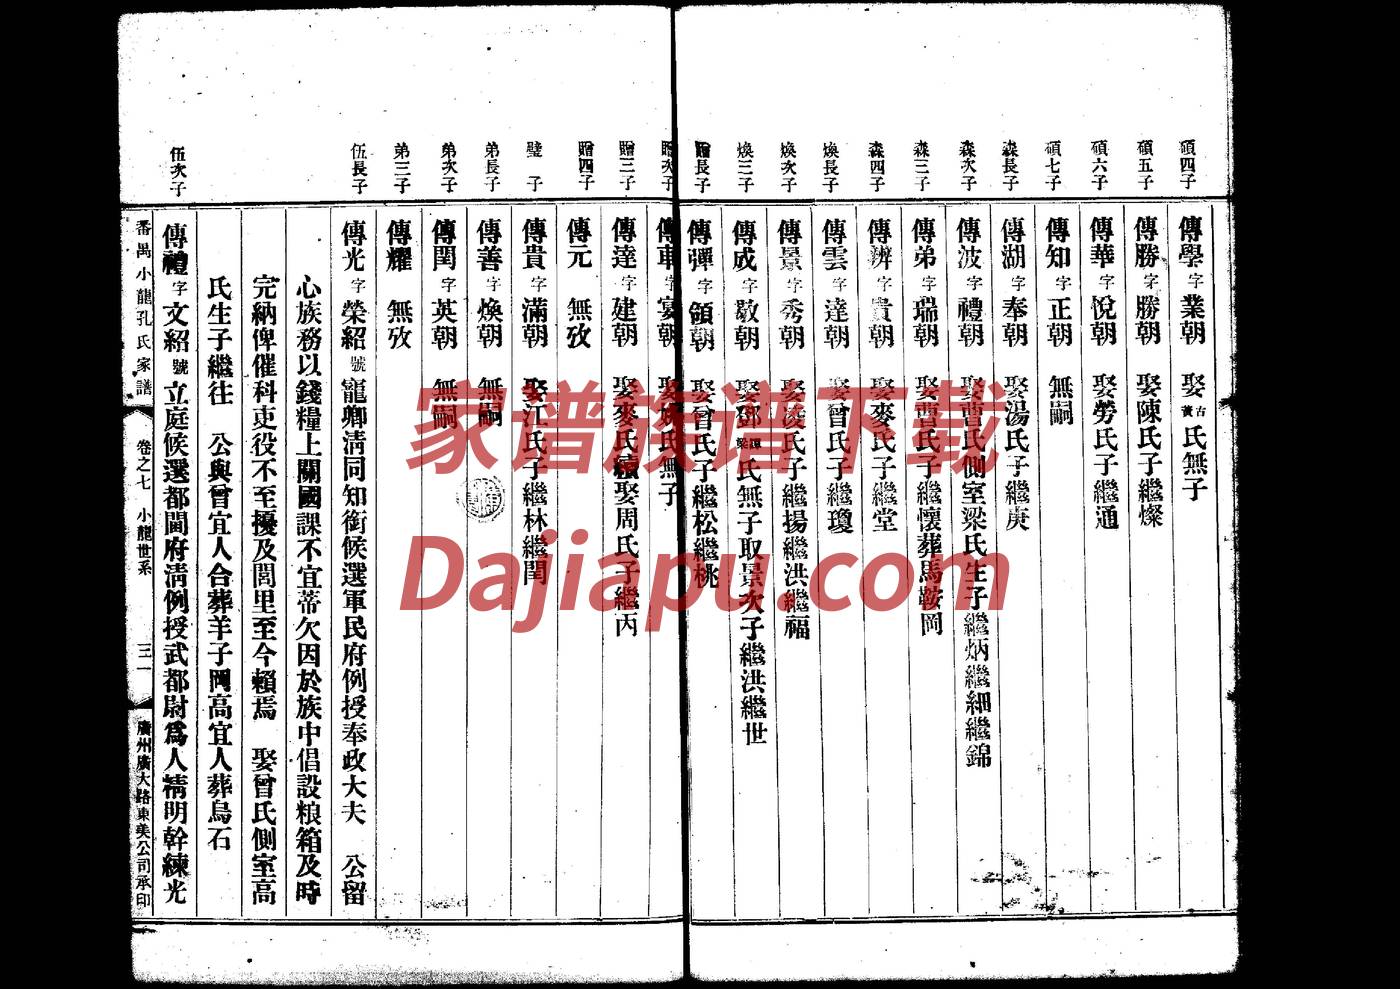 碩四子 傳學 字 業朝 娶古黃氏無子
碩五子 傳勝 字 勝朝 娶陳氏子繼燦
碩六子 傳華 字 悅朝 娶勞氏子繼通
碩七子 傳知 字 正朝 無嗣
森長子 傳湖 字 奉朝 娶湯氏子繼庚
森次子 傳波 字 禮朝 娶曹氏側室梁氏生子繼炳繼細繼錦
森三子 傳弟 字 瑞朝 娶曹氏子繼懷葬馬鞍岡
森四子 傳辨 字 貴朝 娶麥氏子繼堂
煥長子 傳雲 字 達朝 娶曾氏子繼瓊
煥次子 傳景 字 秀朝 娶凌氏子繼揚繼洪繼福
煥三子 傳成 字 敬朝 娶鄧譚梁氏無子取景次子繼洪繼世
贈長子 傳彈 字 領朝 娶曾氏子繼松繼桃
贈次子 傳車 字 宴朝 娶姚氏無子
贈三子 傳達 字 建朝 娶麥氏續娶周氏子繼丙
贈四子 傳元 無攷
璧 子 傳貴 字 滿朝 娶江氏子繼林繼閏
弟長子 傳善 字 煥朝 無嗣
弟次子 傳閏 字 英朝 無嗣
弟三子 傳耀 無攷
伍長子 傳光 字 榮紹 號 寵卿淸同知銜候選軍民府例授奉政大夫 公留
心族務以錢糧上關國課不宜蒂欠因於族中倡設粮箱及時
完納俾催科吏役不至擾及閭里至今賴焉 娶曾氏側室高
氏生子繼往 公與曾宜人合葬羊子岡高宜人葬烏石
伍次子 傳禮 字 文紹 號 立庭候選都閫府淸例授武都尉爲人精明幹練光
番禺小龍孔氏家譜 卷之七 小龍世系 三一 廣州廣大路東美公司承印
家谱族谱下载
Dajiapu.com